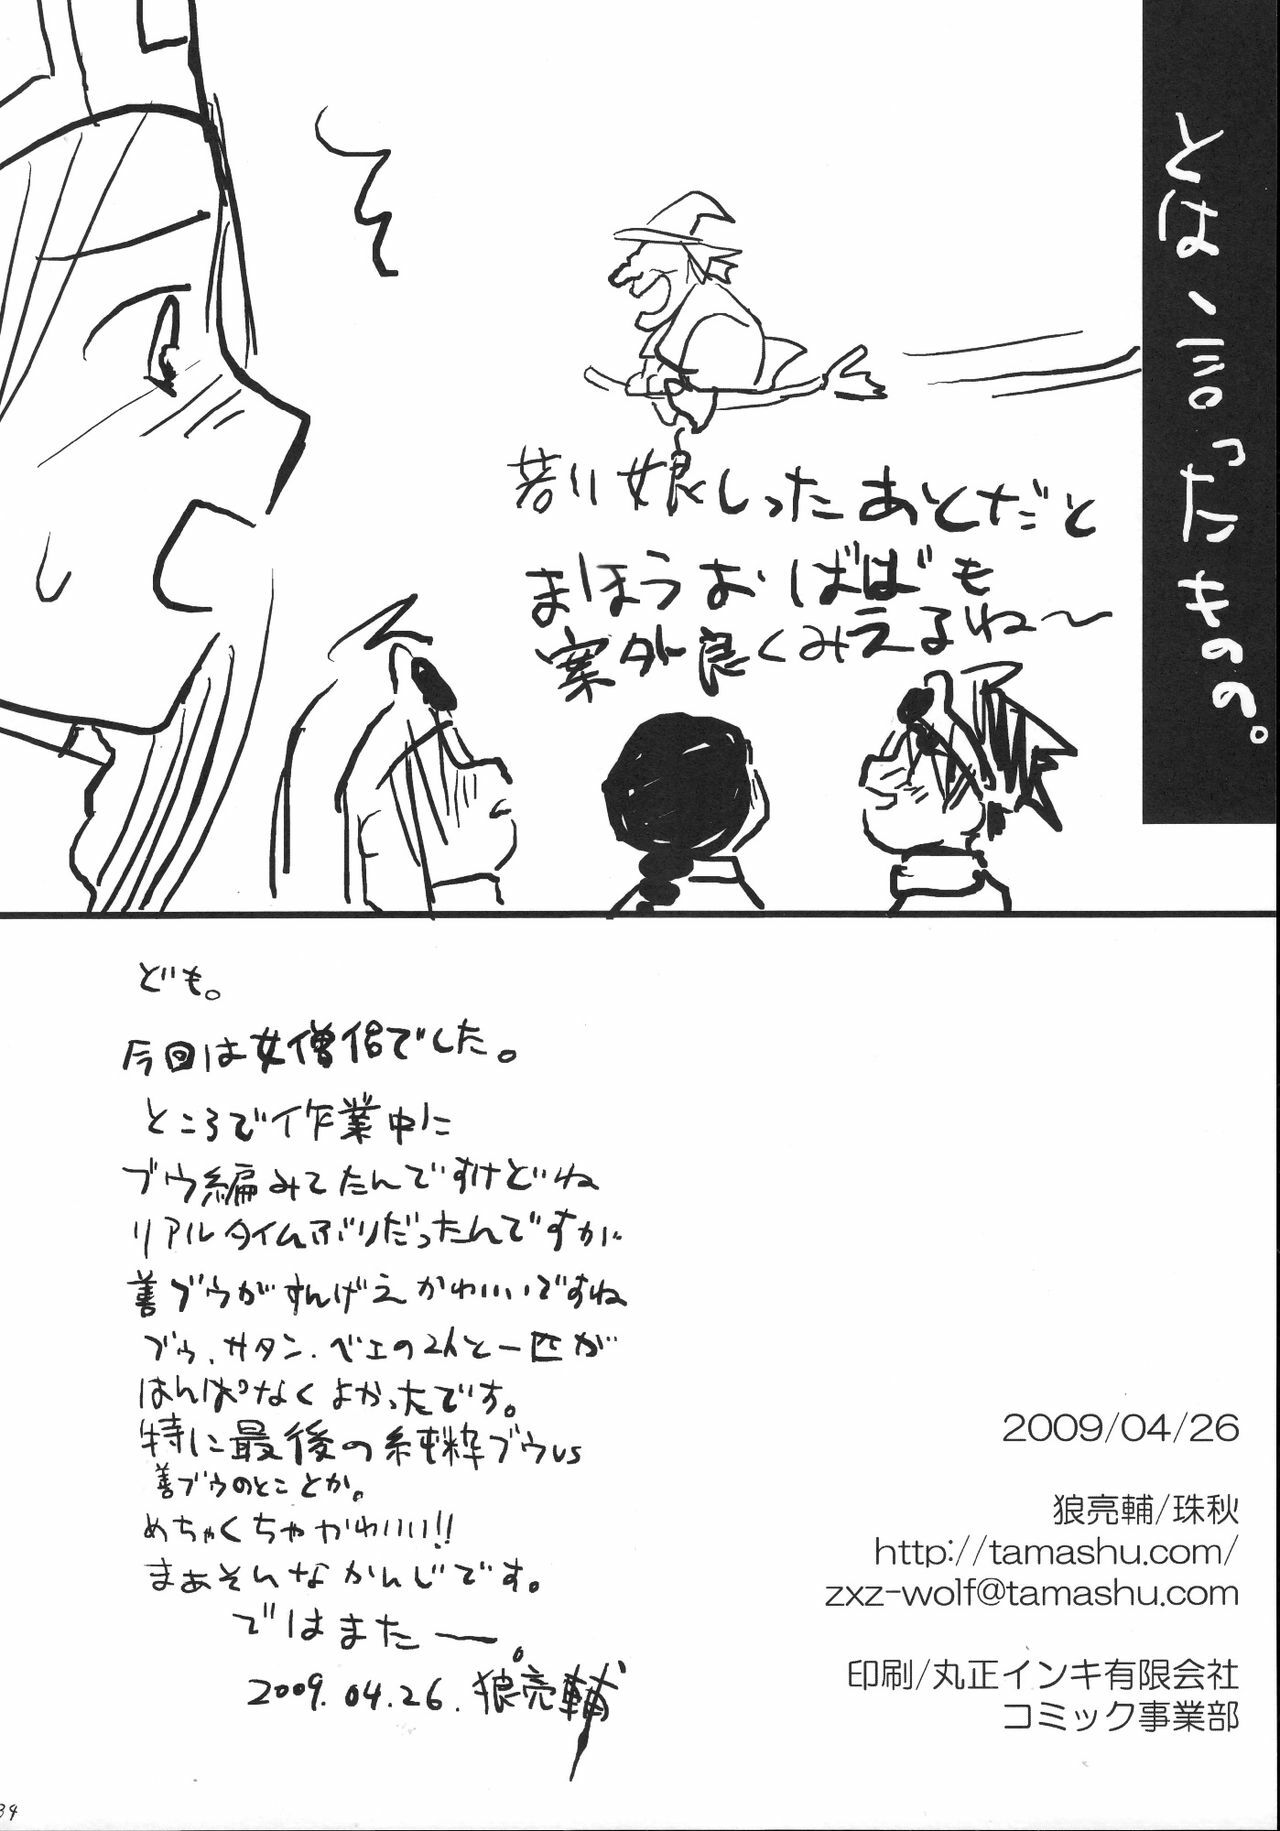 とは、言ったものの。
若い娘しったあとだと
まほうおばばも
案外良くみえるね〜
ども。
今回は女僧侶でした。
ところで作業中に
ブウ編みてたんですけどね
リアルタイムぶりだったんですが
善ブウがすんげえかわいいですね
ブウ、サタン、ベエの2人と一匹が
はんぱなくよかったです。
特に最後の純粋ブウvs
善ブウのとことか。
めちゃくちゃかわいい!!
まぁそんなかんじです。
ではまたー。
2009.04.26.狼亮輔
2009/04/26
狼亮輔/珠秋
http://tamashu.com/
zxz-wolf@tamashu.com
印刷/丸正インキ有限会社
コミック事業部
34